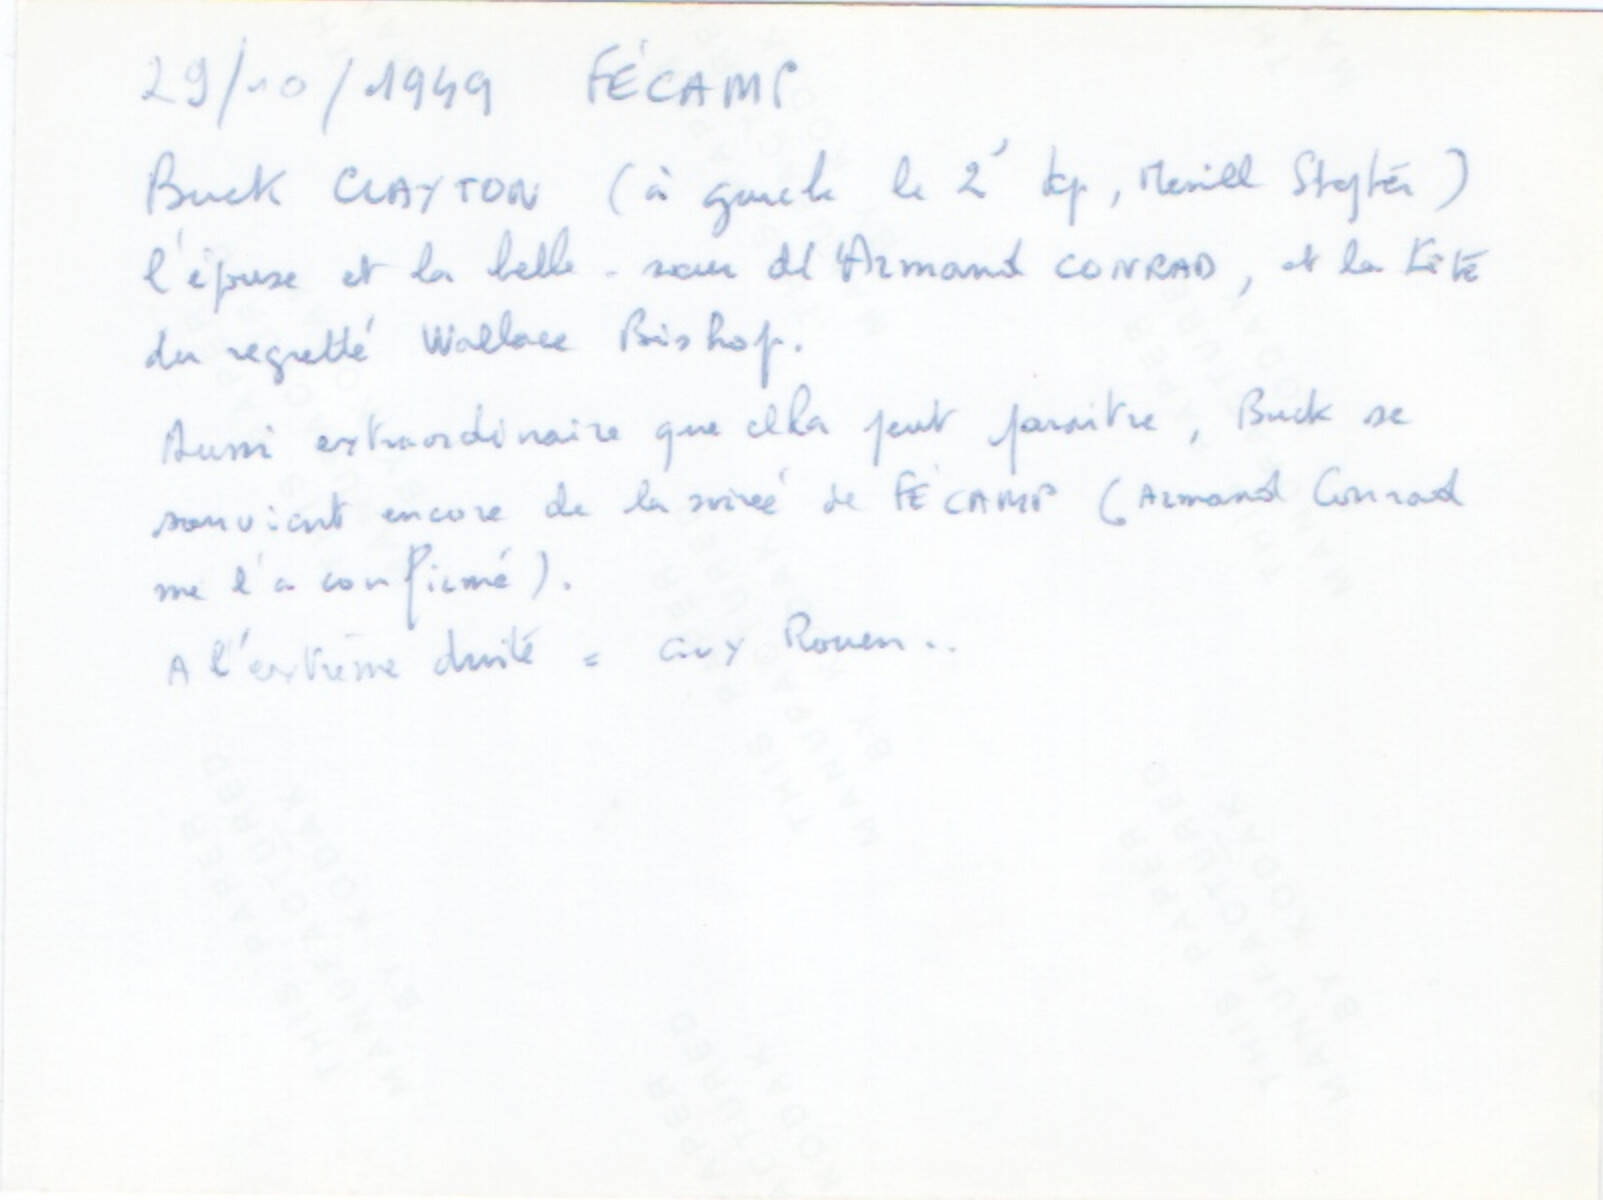 29/10/1949 FÉCAMP
Buck CLAYTON (à gauche le 2e tp, Merill Stepter)
l'épouse et la belle-soeur d'Armand CONRAD, et la tête
du regretté Wallace Bishop.
Aussi extraordinaire que cela peut paraitre, Buck se
souvient encore de la soirée de FÉCAMP (Armand Conrad
me l'a confirmé).
A l'extrême droite = Guy Rouen..
THIS PAPER
MANUFACTURED
BY KODAK
THIS PAPER
MANUFACTURED
BY KODAK
THIS PAPER
MANUFACTURED
BY KODAK